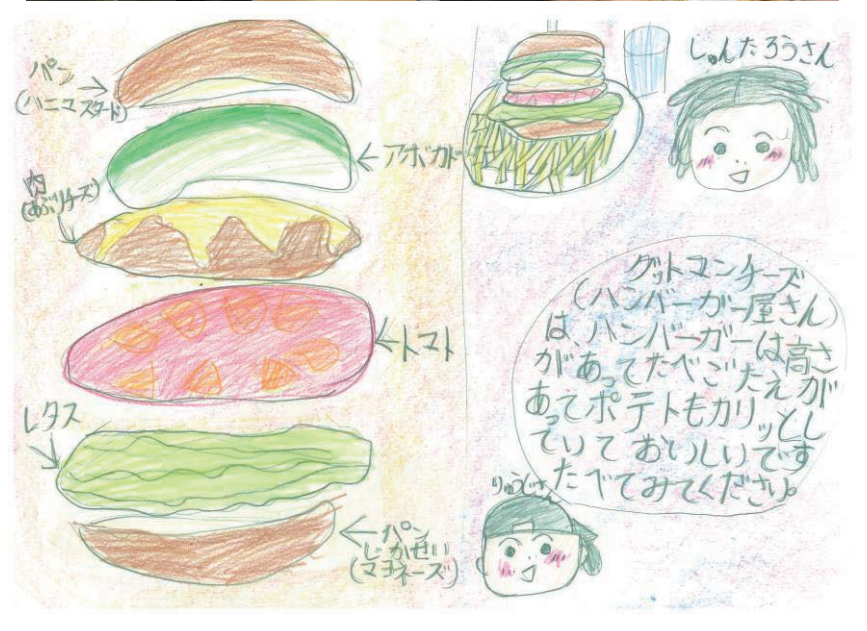 パン
(ハニマスタード)
アボカド
肉
(あぶりチーズ)
トマト
レタス
パン
じかせい
(マヨネーズ)
しゅんたろうさん
グットマンチーズ
(ハンバーガー屋さん)
は、ハンバーガーは高さ
があってたべごたえが
あってポテトもカリッとし
ていておいしいです
たべてみてください。
りゅうじさん